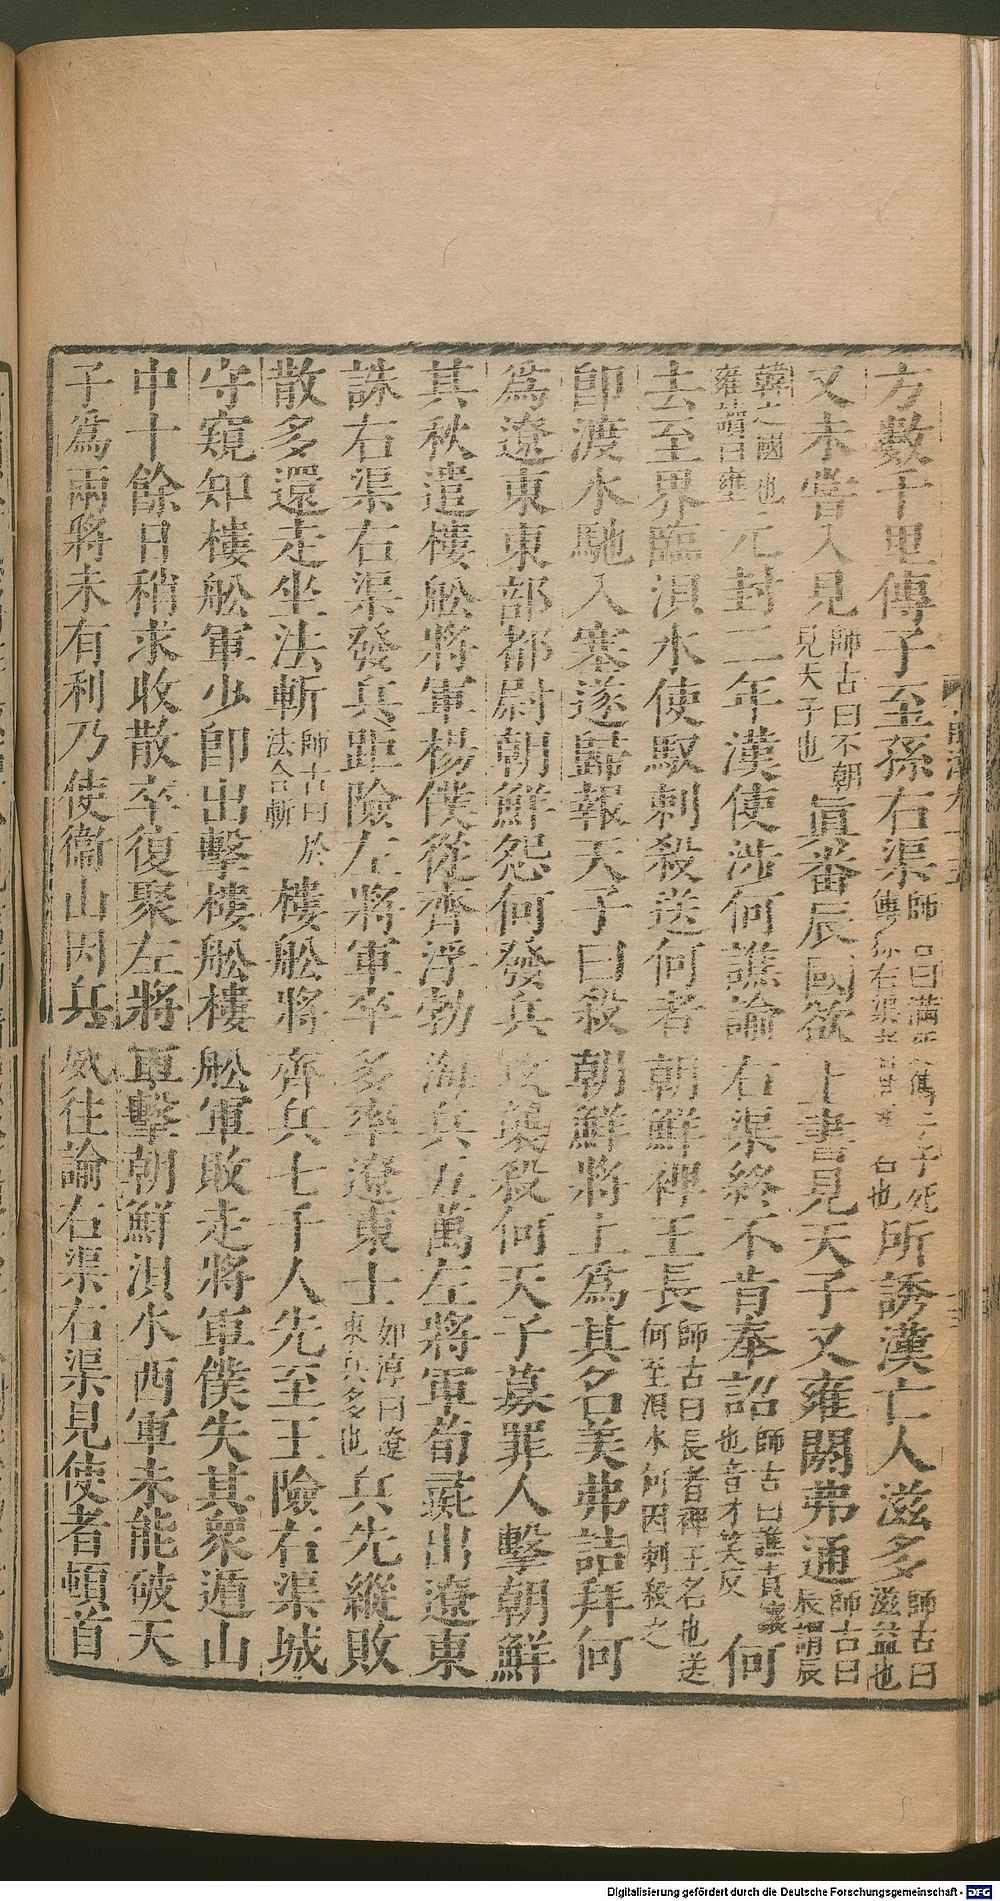 方數千里傳子至孫右渠師曰滿死傳子死傳孫右渠者其孫名也所誘漢亡人滋多師古曰滋益也
又未嘗入見師古曰不朝見天子也眞番辰國欲上書見天子又雍閼弗通師古曰辰謂辰
韓之國也雍讀曰壅元封二年漢使涉何譙諭右渠終不肯奉詔師古曰譙責讓也音才笑反何
去至界臨浿水使馭刺殺送何者朝鮮裨王長師古曰長者裨王名也送何至浿水何因刺殺之
卽渡水馳入塞遂歸報天子曰殺朝鮮將上爲其名美弗詰拜何
爲遼東東部都尉朝鮮怨何發兵攻襲殺何天子募罪人擊朝鮮
其秋遣樓舩將軍楊僕從齊浮勃海兵五萬左將軍荀彘出遼東
誅右渠右渠發兵距險左將軍卒多率遼東士如淳曰遼東兵多也兵先縱敗
散多還走坐法斬師古曰於法合斬樓舩將齊兵七千人先至王險右渠城
守窺知樓舩軍少卽出擊樓舩樓舩軍敗走將軍僕失其衆遁山
中十餘日稍求收散卒復聚左將軍擊朝鮮浿水西軍未能破天
子爲兩將未有利乃使衞山因兵威往諭右渠右渠見使者頓首
Digitalisierung gefördert durch die Deutsche Forschungsgemeinschaft - DFG